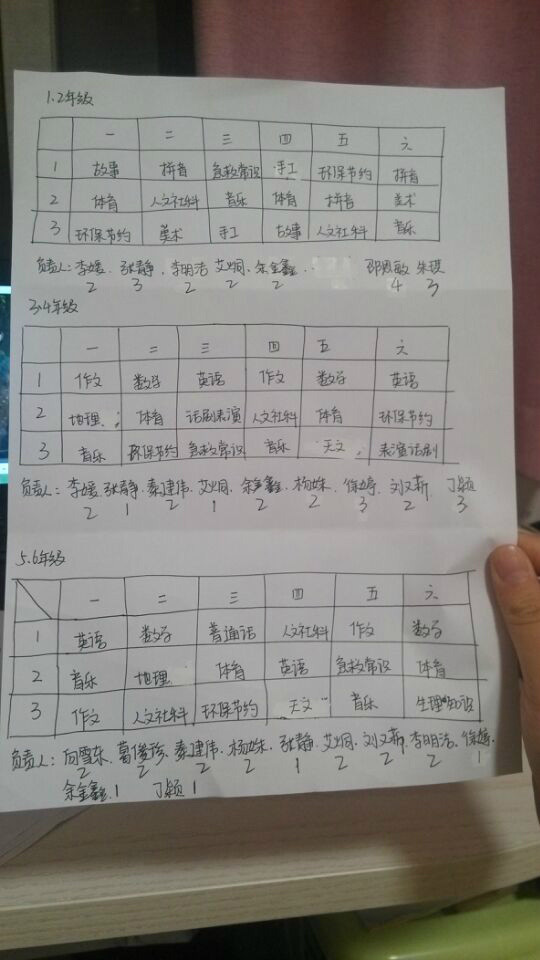 1.2年级
一 二 三 四 五 六
1 故事 拼音 急救常识 手工 环保节约 拼音
2 体育 人文社科 音乐 体育 拼音 美术
3 环保节约 美术 手工 故事 人文社科 音乐
负责人:李媛、张静、李明洁、艾炯、余金鑫、 邵思敏 朱琪
2 3 2 2 2 4 3
3.4年级
一 二 三 四 五 六
1 作文 数学 英语 作文 数学 英语
2 地理 体育 话剧表演 人文社科 体育 环保节约
3 音乐 环保节约 急救常识 音乐 天文 表演话剧
负责人:李媛、张静、秦建伟、艾炯、余金鑫、杨姝、徐婷、刘又新、丁颖
2 1 2 1 2 2 3 2 3
5.6年级
一 二 三 四 五 六
1 英语 数学 普通话 人文社科 作文 数学
2 音乐 地理 体育 英语 急救常识 体育
3 作文 人文社科 环保节约 天文 音乐 生理知识
负责人:向雪东、葛俊珍、秦建伟、杨姝、张静、艾炯、刘又新、李明洁、徐婷、
2 2 2 2 1 2 2 2 1
余金鑫、1 丁颖 1